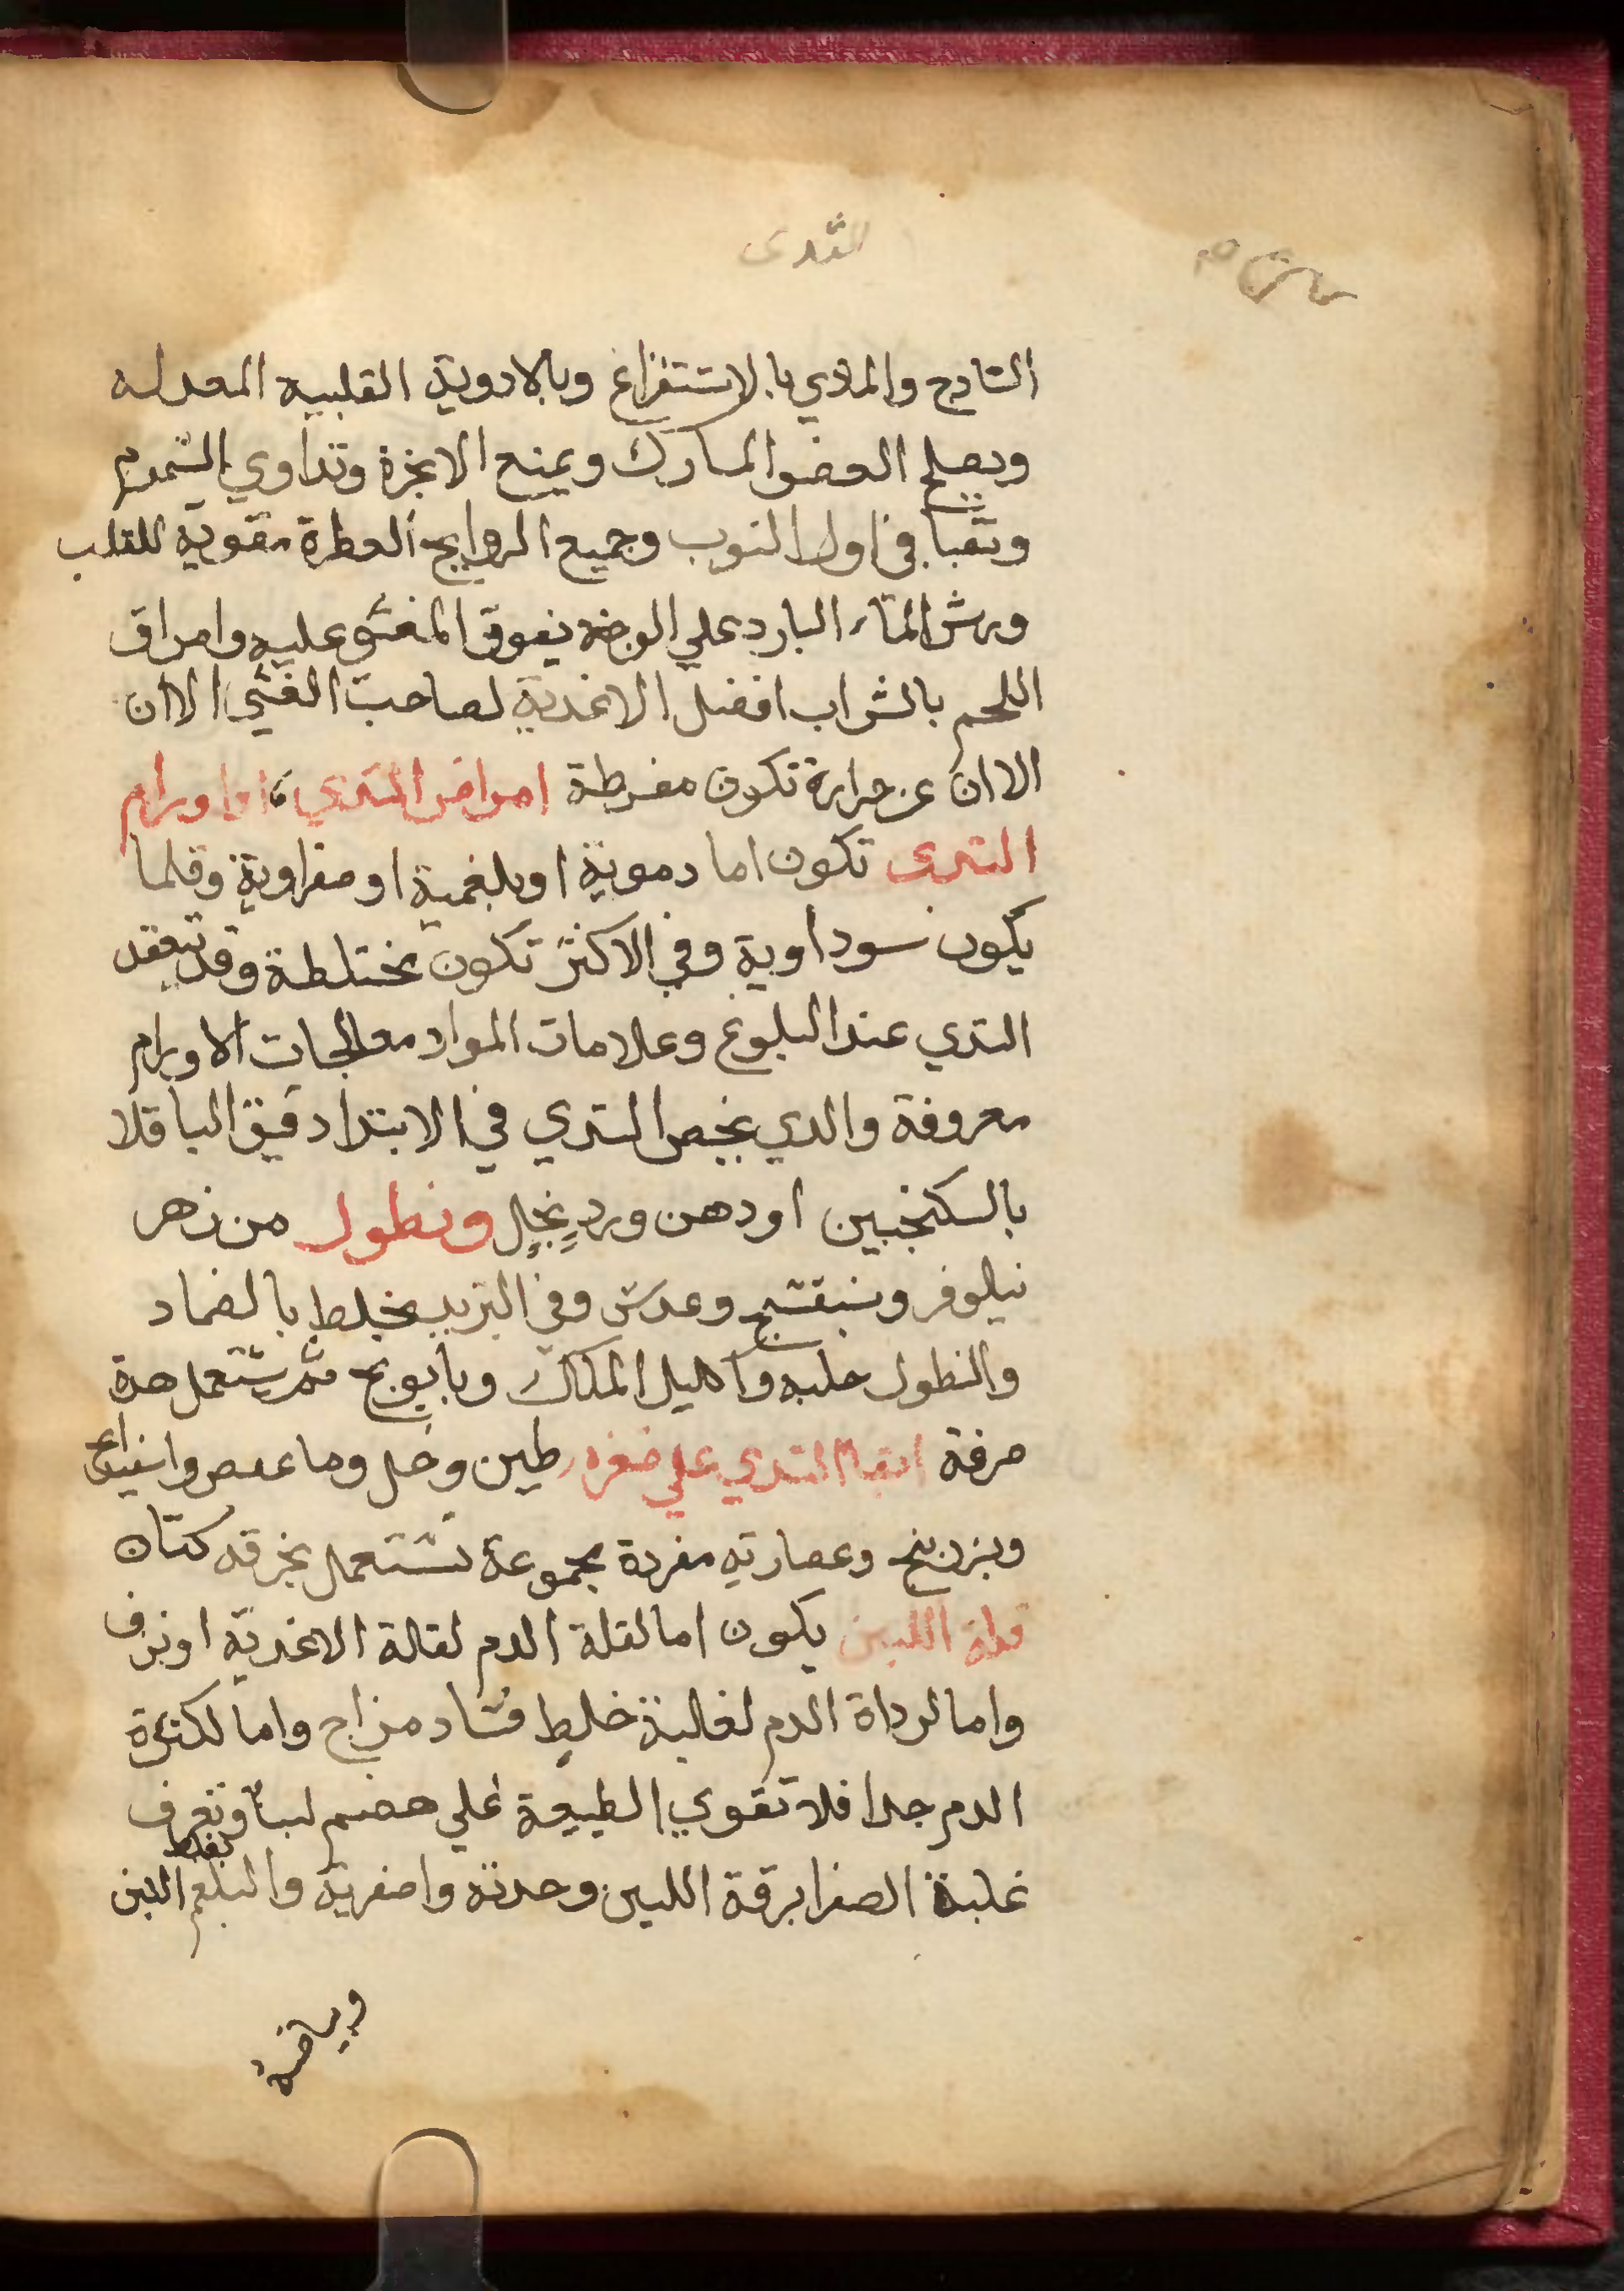 الثدى
الساذج والمادي بالاستفراغ وبالادوية القلبيه المعدله
ويصلح العضو المشارك ويمنع الابخرة وتداوي السموم
وتقيا في اول النوب وجميع الروايح العطرة مقوية للقلب
ورش الماء البارد علي الوجه يفوق المغشي عليه وامراق
اللحم بالشراب افضل الاغدية لصاحب الغشي الا ان
الا ان عن حرارة تكون مفرطة امراض التدي اما اورام
التدى تكون اما دموية او بلغمية او صفراوية وقلما
يكون سوداوية وفي الاكثر تكون مختلطة وقد تنعقد
التدي عند البلوغ وعلامات المواد معالجات الاورام
معروفة والدي يخص التدي في الابتدا دقيق الباقلا
بالسكنجبين او دهن ورد بخل ونطول من زهر
نيلوفر وبنفسج وعدس وفي التزيد يخلط بالضماد
والنطول حلبه واكليل الملك وبابونج ثم يستعمل هدة
صرفة ابقا التدي علي صغره طين وخل وما عفص واسفيداج
وبزر بنج وعصارته مفردة مجموعة تستعمل بخرقه كتان
قلة اللبن يكون اما لقلة الدم لقالة الاغدية او نزف
واما لرداة الدم لغالبة خلط فساد مزاج واما لكثرة
الدم جدا فلا تقوي الطبيعة علي هضم لبنا وتعرف
غلبة الصفرا برقة اللبن وحدته واصفرية والبلغم بغلظ اللبن
وبياضه